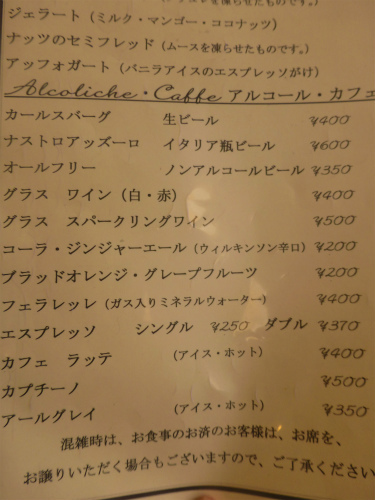 ジェラート（ミルク・マンゴー・ココナッツ）
ナッツのセミフレッド（ムースを凍らせたものです。）
アッフォガート（バニラアイスのエスプレッソがけ）
Alcoliche・Caffe アルコール・カフェ
カールスバーグ 生ビール ¥400
ナストロアッズーロ イタリア瓶ビール ¥600
オールフリー ノンアルコールビール ¥350
グラス ワイン（白・赤） ¥400
グラス スパークリングワイン ¥500
コーラ・ジンジャーエール（ウィルキンソン辛口） ¥200
ブラッドオレンジ・グレープフルーツ ¥200
フェラレッレ（ガス入りミネラルウォーター） ¥400
エスプレッソ シングル ¥250 ダブル ¥370
カフェ ラッテ （アイス・ホット） ¥400
カプチーノ ¥500
アールグレイ （アイス・ホット） ¥350
混雑時は、お食事のお済のお客様は、お席を、
お譲りいただく場合もございますので、ご了承ください